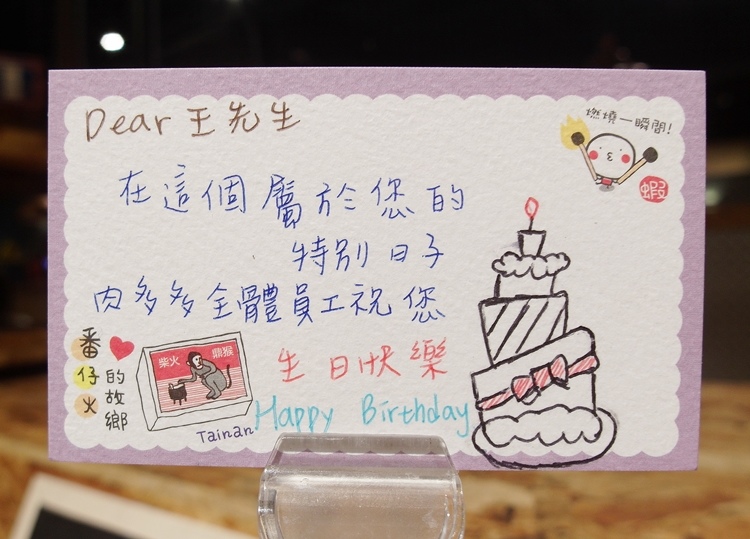 Dear 王先生
燃燒一瞬間!
蝦
在這個屬於您的
特別日子
肉多多全體員工祝您
生日快樂
Happy Birthday
番仔火
的故鄉
柴火 鼎猴
Tainan